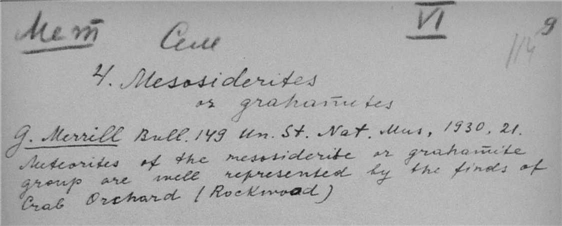 Мет VI 9
114
4. Mesosiderites
or grahamites
G. Merrill Bull. 149 Un. St. Nat. Mus, 1930, 21.
Meteorites of the mesosiderite or grahamite
group are well represented by the finds of
Crab Orchard (Rockwood)